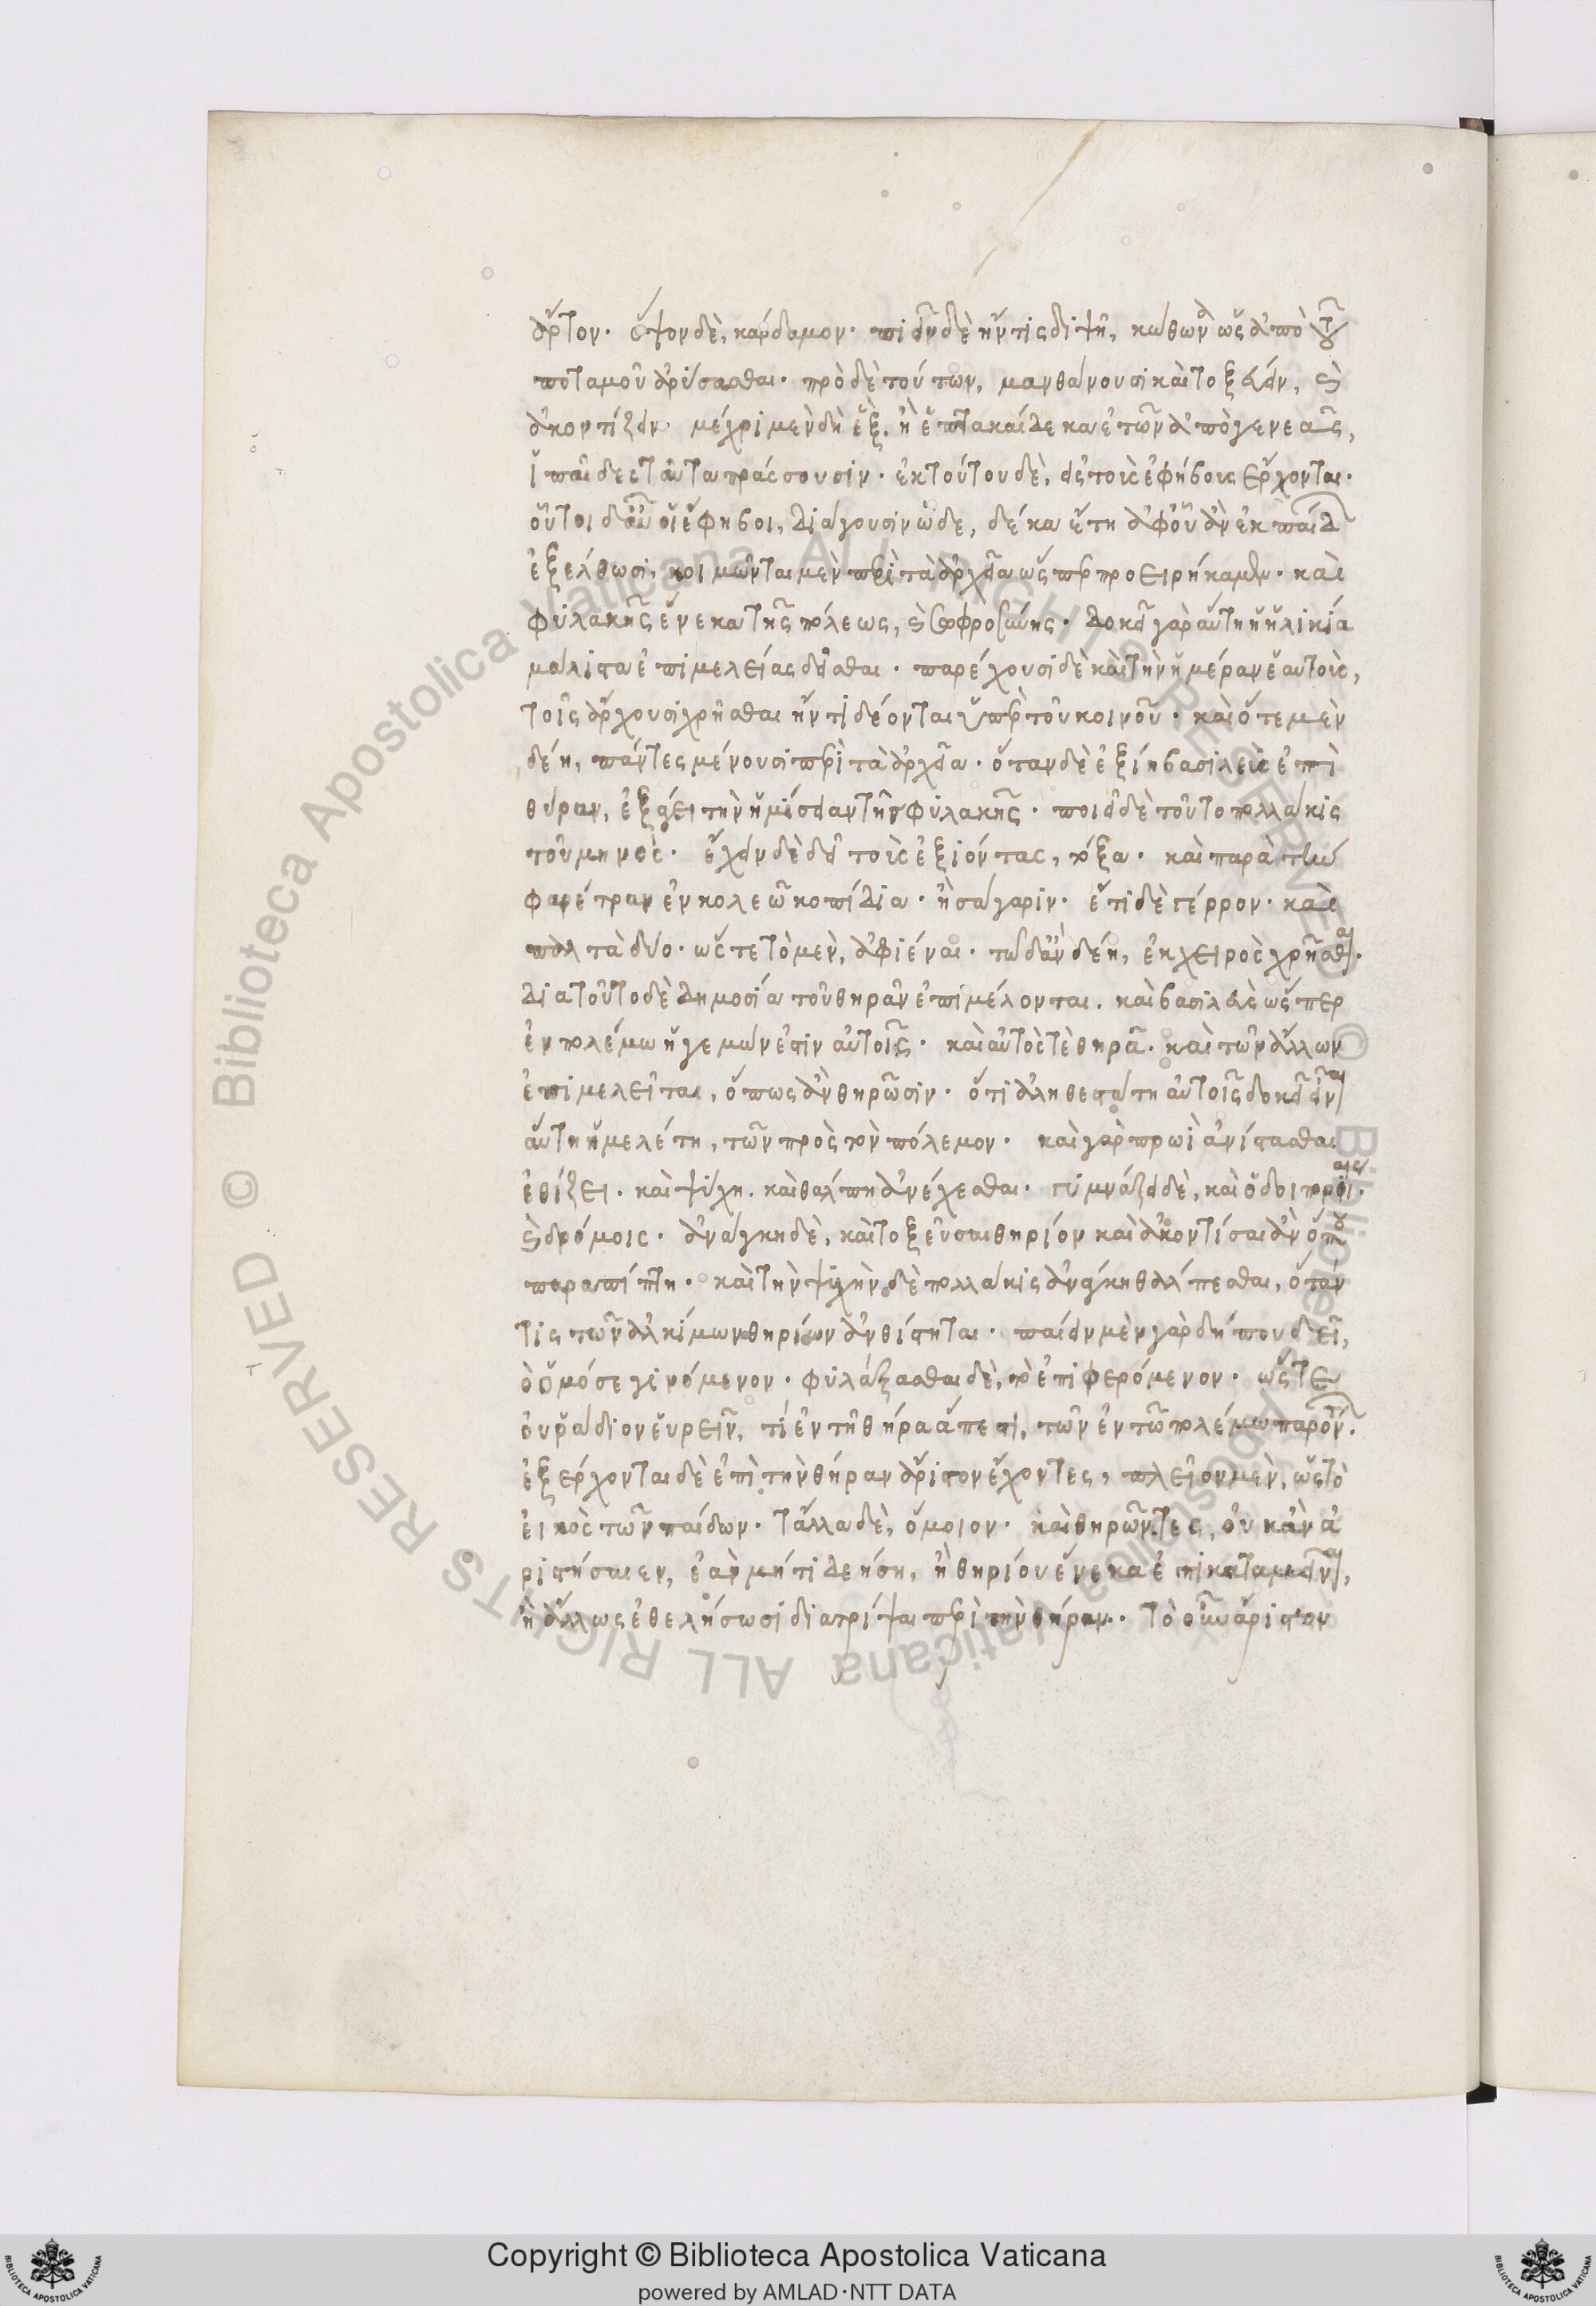 ἄρτον· ὄψον δὲ, κάρδαμον· πιεῖν δὲ ἤν τις διψῇ, κώθωνα ὡς ἀπὸ τοῦ
ποταμοῦ ἀρύσασθαι· πρὸ δὲ τούτων, μανθάνουσι καὶ τοξεύειν, καὶ
ἀκοντίζειν· μέχρι μὲν δὴ ἓξ ἢ ἑπτακαίδεκα ἐτῶν ἀπὸ γενεᾶς,
ἱ παῖδες ταῦτα πράσσουσιν· ἐκ τούτου δὲ, εἰς τοὺς ἐφήβους ἔρχονται·
οὗτοι δ' αὖ οἱ ἔφηβοι, διάγουσιν ὧδε, δέκα ἔτη ἀφ' οὗ ἂν ἐκ παίδ
ἐξέλθωσι, κοιμῶνται μὲν περὶ τὰ ἀρχεῖα ὥσπερ προειρήκαμεν· καὶ
φυλακῆς ἕνεκα τῆς πόλεως, καὶ σωφροσύνης· δοκεῖ γὰρ αὕτη ἡ ἡλικία
μάλιστα ἐπιμελείας δεῖσθαι· παρέχουσι δὲ καὶ τὴν ἡμέραν ἑαυτοὺς,
τοῖς ἄρχουσι χρῆσθαι ἤν τι δέονται ὑπὲρ τοῦ κοινοῦ· καὶ ὅτε μὲν
δέη, πάντες μένουσι περὶ τὰ ἀρχεῖα· ὅταν δὲ ἐξίη βασιλεὺς ἐπὶ
θύραν, ἐξάγει τὴν ἡμίσειαν τῆς φυλακῆς· ποιεῖ δὲ τοῦτο πολλάκις
τοῦ μηνὸς· ἔχειν δὲ δεῖ τοὺς ἐξιόντας, τόξα· καὶ παρὰ τὴν
φαρέτραν ἐν κολεῷ κοπίδια· ἢ σάγαριν· ἔτι δὲ γέρρον· καὶ
παλτὰ δύο· ὥστε τὸ μὲν, ἀφιέναι· τῷ δ' ἂν δέη, ἐκ χειρὸς χρῆσθαι·
διὰ τοῦτο δὲ δημοσίᾳ τοῦ θηρᾶν ἐπιμέλονται. καὶ βασιλεὺς ὥσπερ
ἐν πολέμῳ ἡγεμών ἐστιν αὐτοῖς· καὶ αὐτός τε θηρᾷ. καὶ τῶν ἄλλων
ἐπιμελεῖται, ὅπως ἂν θηρῶσιν· ὅτι ἀληθεστάτη αὐτοῖς δοκεῖ εἶναι
αὕτη ἡ μελέτη, τῶν πρὸς τὸν πόλεμον· καὶ γὰρ πρωὶ ἀνίστασθαι
ἐθίζει· καὶ ψύχη. καὶ θάλπη ἀνέχεσθαι· γυμνάζει δὲ, καὶ ὁδοιπορίαις·
καὶ δρόμοις· ἀνάγκη δὲ, καὶ τοξεῦσαι θηρίον καὶ ἀκοντίσαι ἂν ὅπου
παραπίπτη· καὶ τὴν ψυχὴν δὲ πολλάκις ἀνάγκη θάλπεσθαι, ὅταν
τις τῶν ἀλκίμων θηρίων ἀνθίστηται· παίειν μὲν γὰρ δήπου δεῖ,
ὁ ὁμόσε γινόμενον· φυλάξασθαι δὲ, τὸ ἐπιφερόμενον· ὥστε
οὐ ῥᾴδιον εὑρεῖν, τί ἐν τῇ θήρᾳ ἄπεστι, τῶν ἐν τῷ πολέμῳ παρόντων.
ἐξέρχονται δὲ ἐπὶ τὴν θήραν ἄριστον ἔχοντες, πλεῖον μὲν, ὡς τὸ
εἰκὸς τῶν παίδων· τἆλλα δὲ, ὅμοιον· καὶ θηρῶντες, οὐκ ἂν ἀ
ριστήσαιεν, ἐὰν μή τι δεήση, ἢ θηρίου ἕνεκα ἐπικαταμεῖναι,
ἢ ἄλλως ἐθελήσωσι διατρίψαι περὶ τὴν θήραν· τὸ οὖν ἄριστον
Biblioteca Apostolica Vaticana ALL RIGHTS RESERVED ©
Copyright © Biblioteca Apostolica Vaticana
powered by AMLAD·NTT DATA